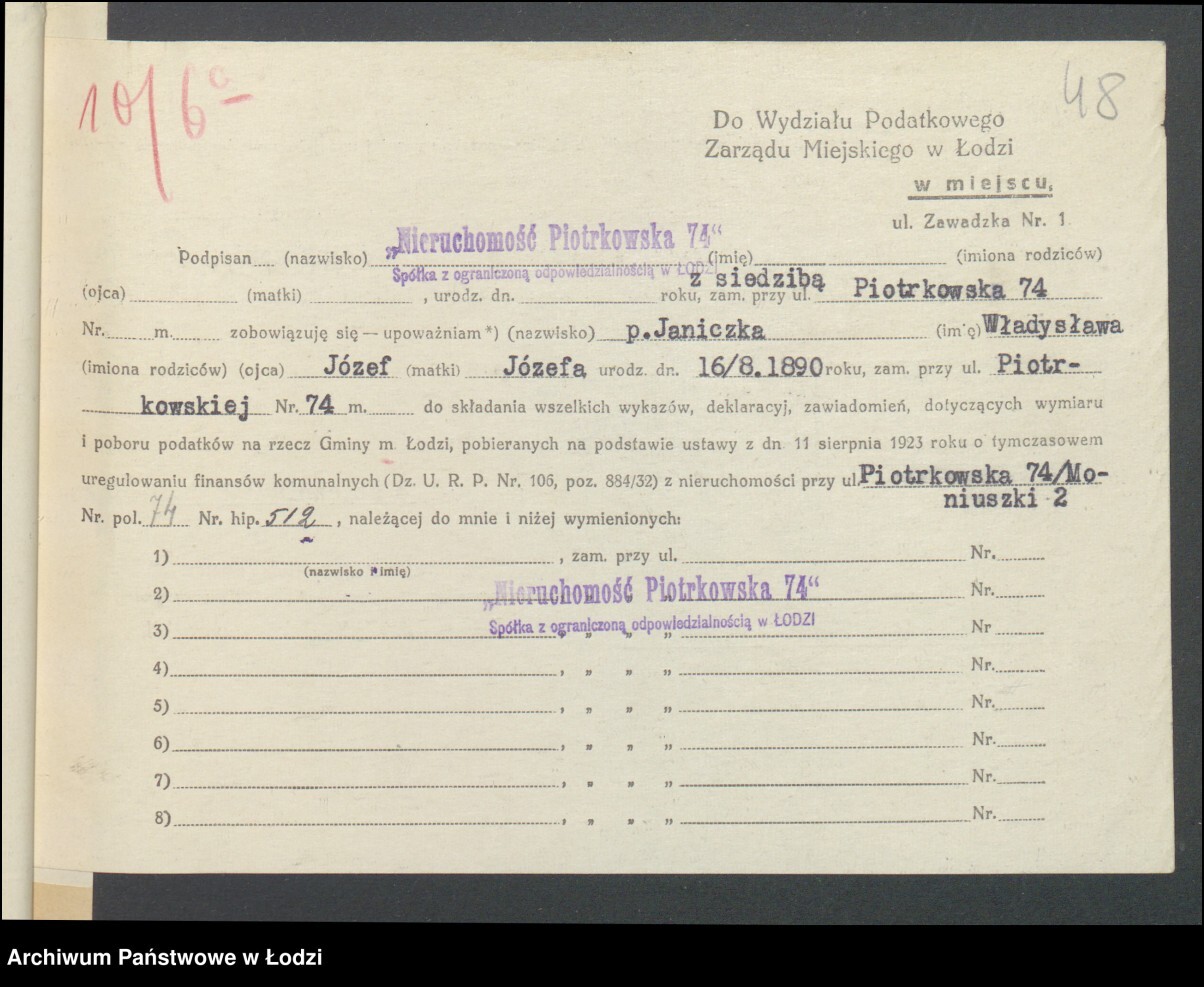 10/6c
48
Do Wydziału Podatkowego
Zarządu Miejskiego w Łodzi
w miejscu,
ul. Zawadzka Nr. 1
„Nieruchomość Piotrkowska 74"
Podpisan.... (nazwisko) (imię) (imiona rodziców)
Spółka z ograniczoną odpowiedzialnością w ŁODZI
z siedzibą
(ojca) (matki) , urodz. dn. roku, zam. przy ul. Piotrkowska 74
Nr. m. zobowiązuję się — upoważniam *) (nazwisko) p.Janiczka (imię) Władysława
(imiona rodziców) (ojca) Józef (matki) Józefa urodz. dn. 16/8.1890 roku, zam. przy ul. Piotr-
kowskiej Nr. 74 m. do składania wszelkich wykazów, deklaracyj, zawiadomień, dotyczących wymiaru
i poboru podatków na rzecz Gminy m. Łodzi, pobieranych na podstawie ustawy z dn. 11 sierpnia 1923 roku o tymczasowem
uregulowaniu finansów komunalnych (Dz. U. R. P. Nr. 106, poz. 884/32) z nieruchomości przy ul. Piotrkowska 74/Mo-
niuszki 2
Nr. pol. 74 Nr. hip. 512 , należącej do mnie i niżej wymienionych:
1) , zam. przy ul. Nr.
(nazwisko i imię)
„Nieruchomość Piotrkowska 74"
2) Nr.
Spółka z ograniczoną odpowiedzialnością w ŁODZI
3) „ „ „ Nr
4) , „ „ „ Nr.
5) , „ „ „ Nr.
6) , „ „ „ Nr.
7) , „ „ „ Nr.
8) , „ „ „ Nr.
Archiwum Państwowe w Łodzi